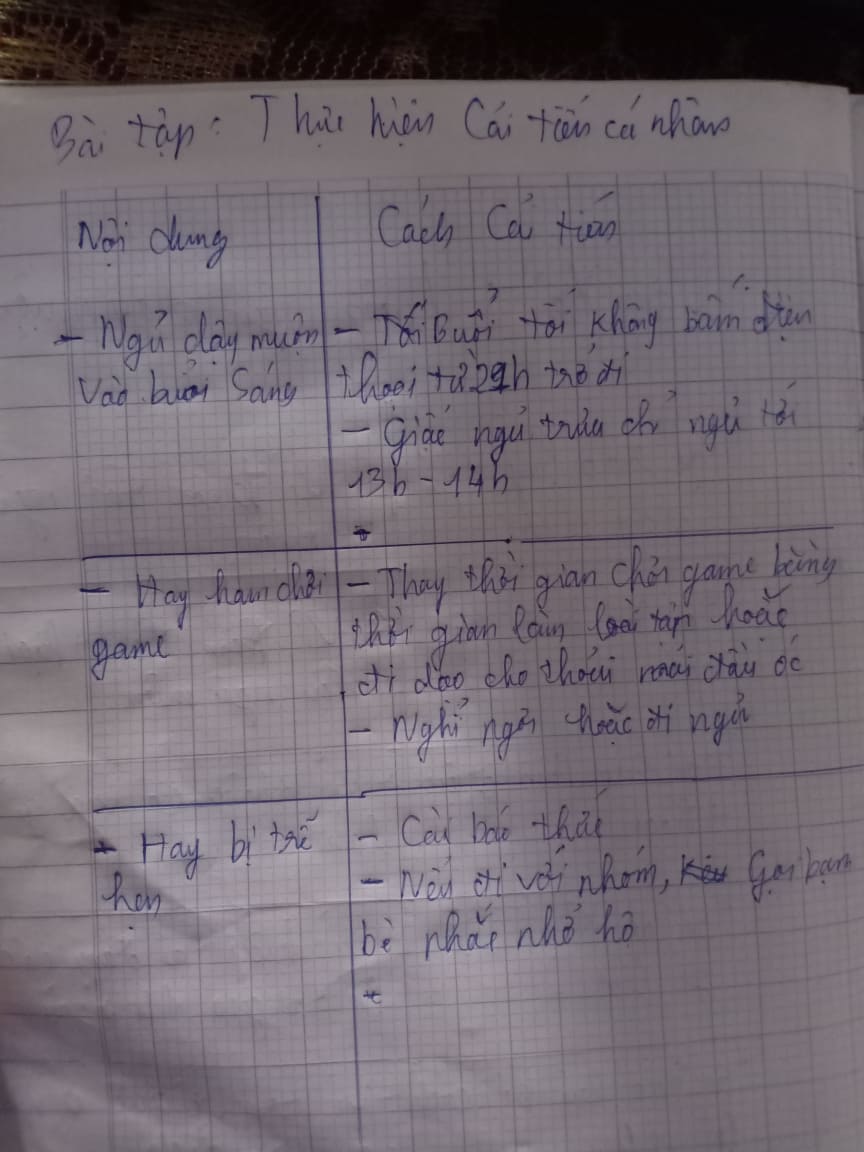 Bài tập: Thực hiện Cải tiến cá nhân
Nội dung
Cách Cải tiến
- Ngủ dậy muộn
vào buổi Sáng
- Buổi tối không bấm điện
thoại từ 22h trở đi
- Giấc ngủ trưa chỉ ngủ tới
13h - 14h
- Hay ham chơi
game
- Thay thời gian chơi game bằng
thời gian làm bài tập hoặc
đi dạo cho thoải mái đầu óc
- Nghỉ ngơi hoặc đi ngủ
- Hay bị trễ
hẹn
- Cài báo thức
- Nếu đi với nhóm, Gọi bạn
bè nhắc nhở hộ